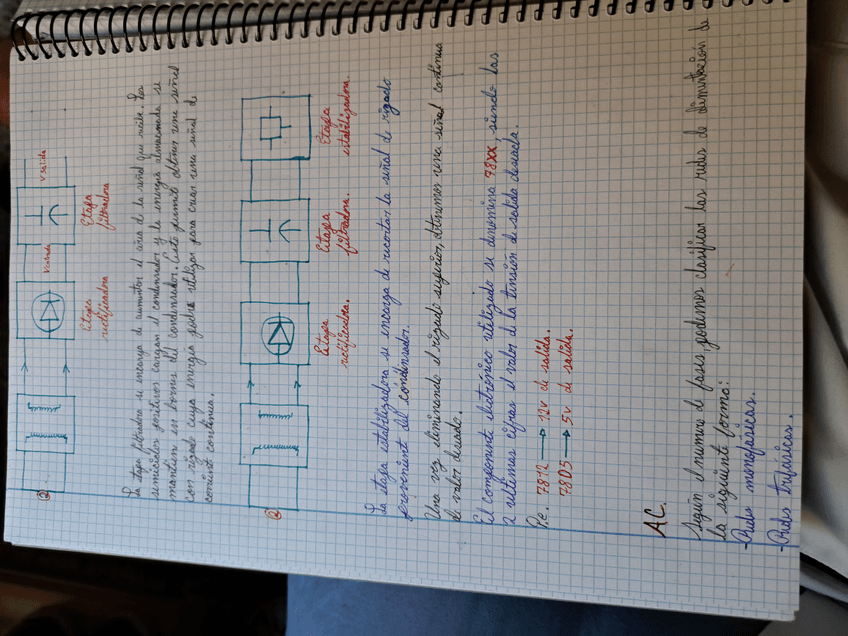 ②
Ventrada
V salida
Etapa rectificadora
Etapa filtradora
La etapa filtradora se encarga de aumentar el area de la señal que recibe. Los
semiciclos positivos cargan el condensador y la energía almacenada se
mantiene en bornes del condensador. Esto permite obtener una señal
con rizado cuya energía podrá utilizar para crear una señal de
corriente continua.
②
Etapa rectificadora.
Etapa filtradora.
Etapa estabilizadora.
La etapa estabilizadora se encarga de recortar la señal de rizado
proveniente del condensador.
Una vez eliminando el rizado superior, obtenemos una señal continua
de valor deseado.
El componente electrónico utilizado se denomina 78XX, siendo las
2 ultimas cifras el valor de la tensión de salida deseada.
P.e. 7812 → 12v de salida.
7805 → 5v de salida.
A.C.
Según el numero de fases, podemos clasificar las redes de alimentación de
la siguiente forma:
-Redes monofásicas.
-Redes trifásicas.